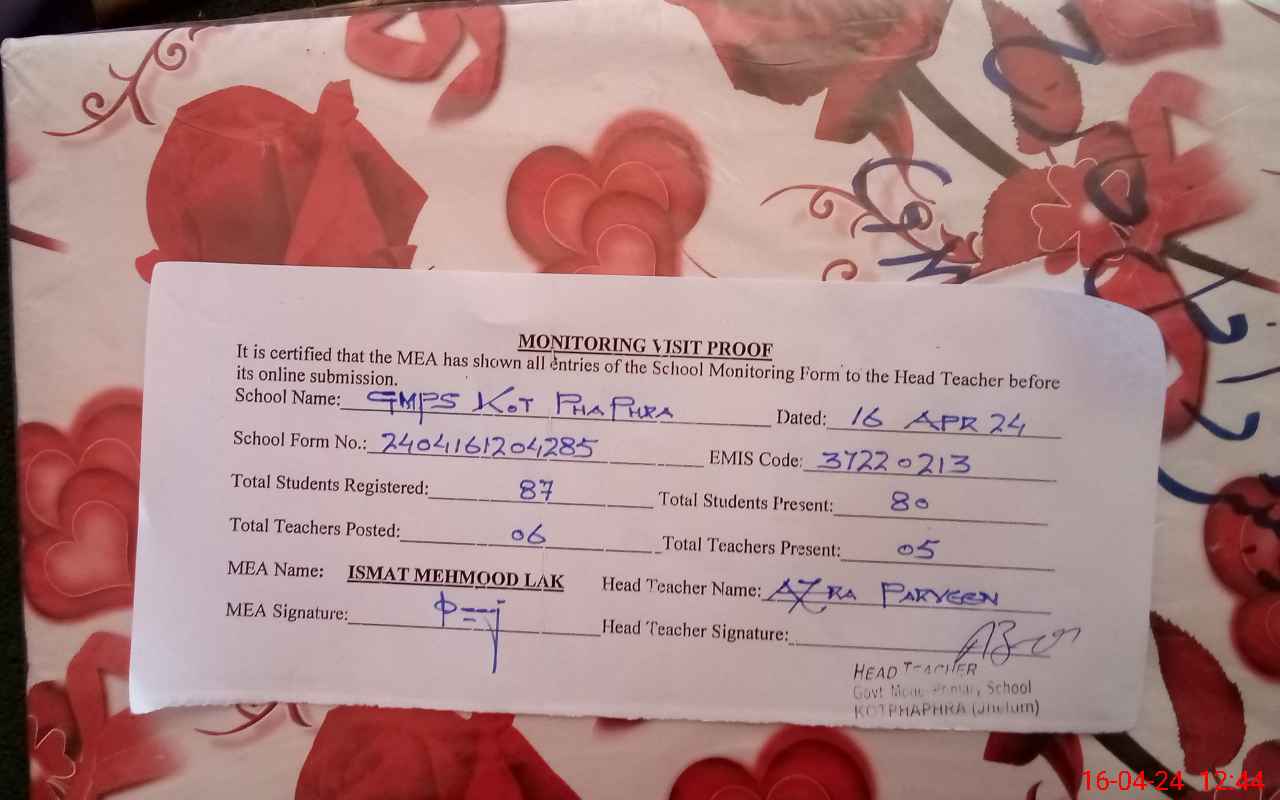 MONITORING VISIT PROOF
It is certified that the MEA has shown all entries of the School Monitoring Form to the Head Teacher before
its online submission.
School Name: GMPS KOT PHAPHRA Dated: 16 APR 24
School Form No.: 2404161204285 EMIS Code: 37220213
Total Students Registered: 87 Total Students Present: 80
Total Teachers Posted: 06 Total Teachers Present: 05
MEA Name: ISMAT MEHMOOD LAK Head Teacher Name: AZRA PARVEEN
MEA Signature: Head Teacher Signature:
HEAD TEACHER
Govt Model Primary School
KOT PHAPHRA (Jhelum)
16-04-24 12:44